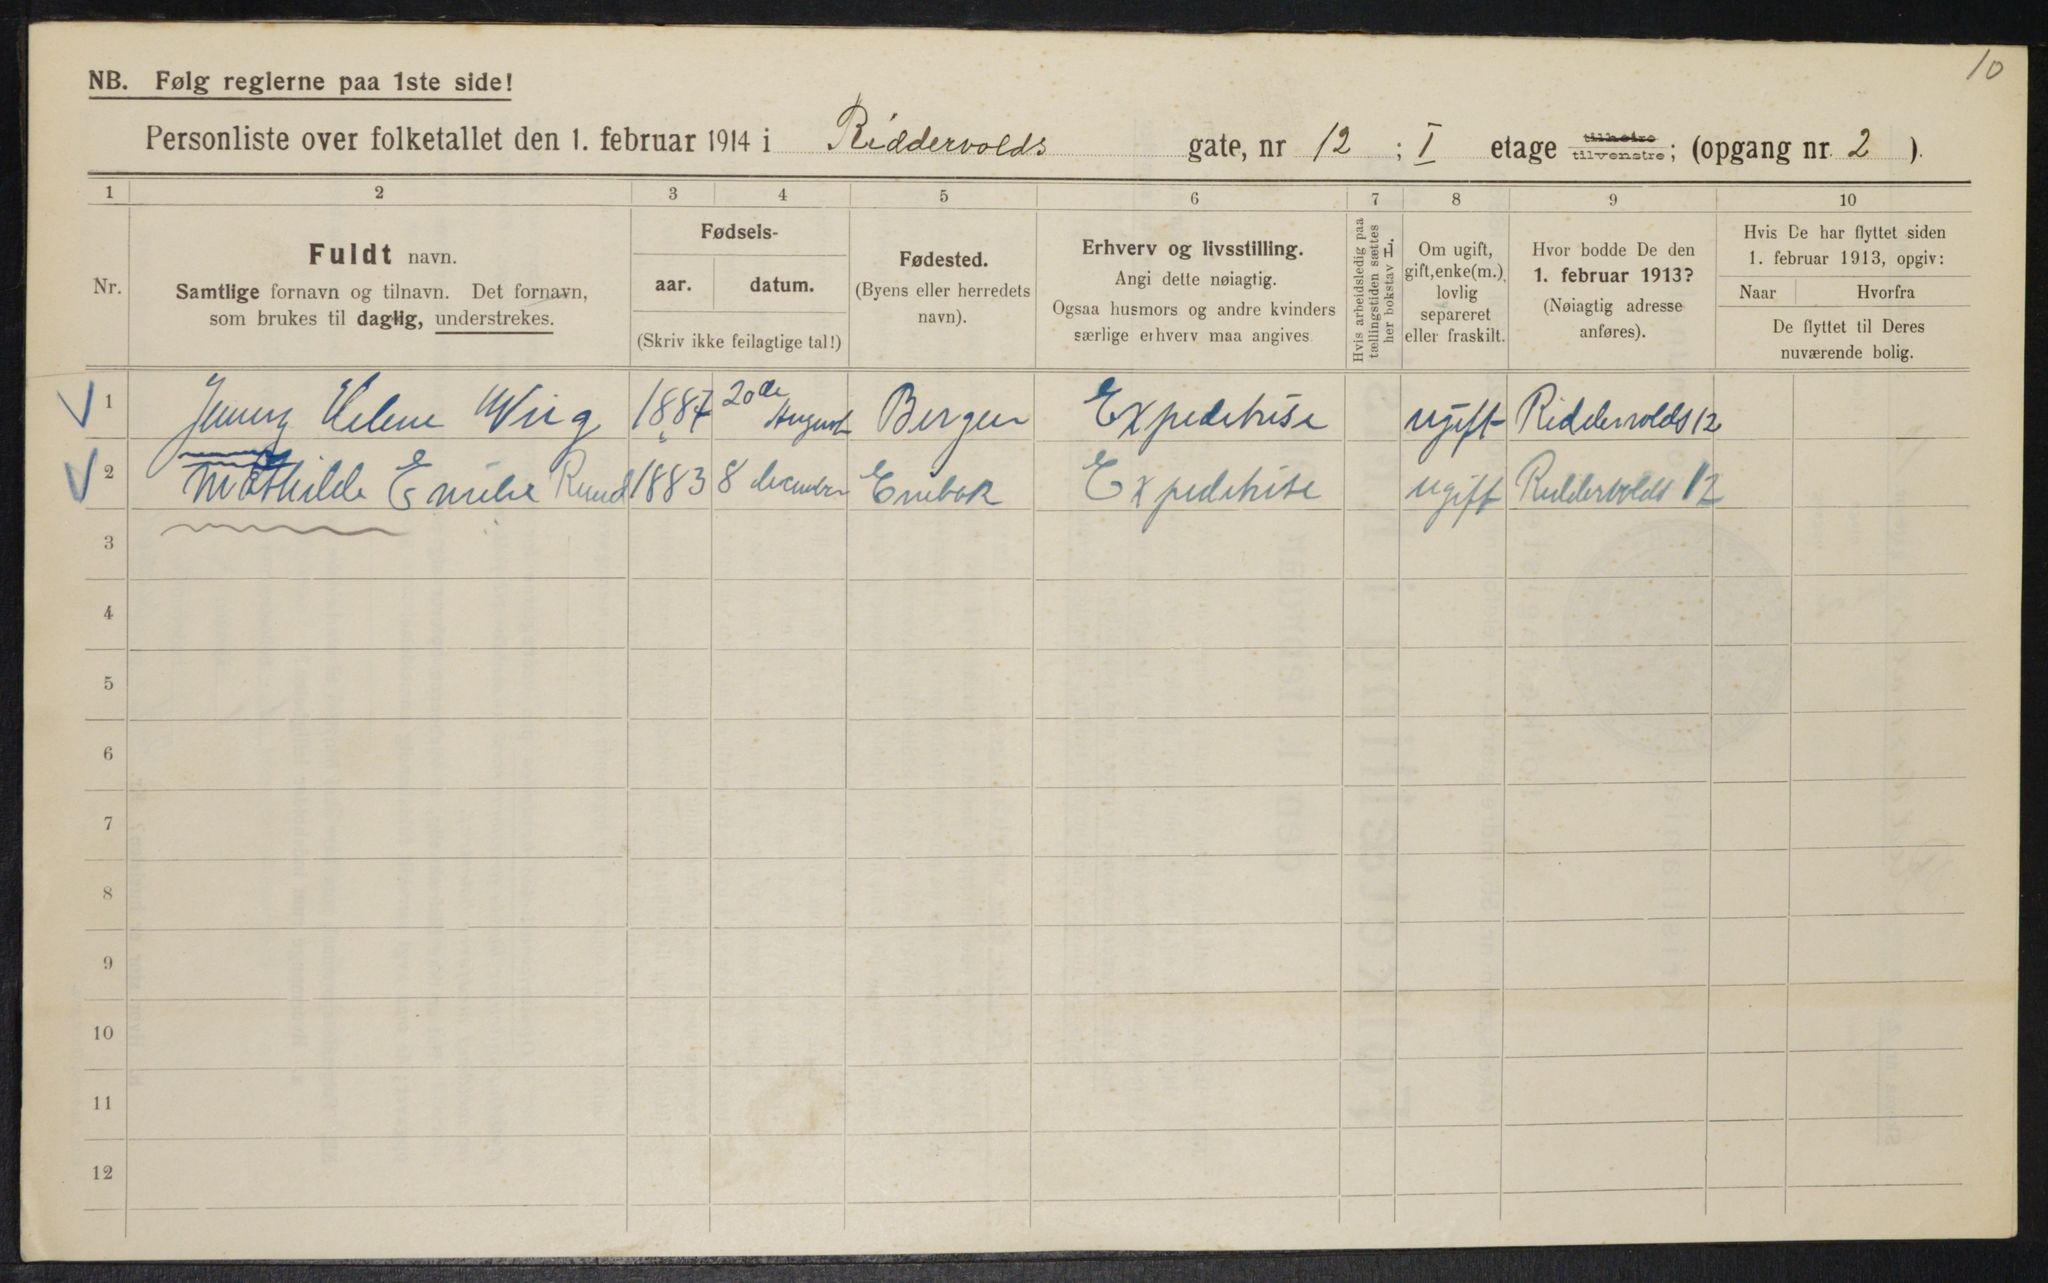 10
NB. Følg reglerne paa 1ste side!
Personliste over folketallet den 1. februar 1914 i Riddervolds gate, nr 12 ; I etage tilhøire tilvenstre; (opgang nr. 2 ).
1 2 3 4 5 6 7 8 9 10
Nr.
Fuldt navn.
Samtlige fornavn og tilnavn. Det fornavn,
som brukes til daglig, understrekes.
Fødsels-
aar. datum.
(Skriv ikke feilagtige tal!)
Fødested.
(Byens eller herredets
navn).
Erhverv og livsstilling.
Angi dette nøiagtig.
Ogsaa husmors og andre kvinders
særlige erhverv maa angives
Hvis arbeidsledig paa
tællingstiden sættes
her bokstav L.
Om ugift,
gift, enke(m.),
lovlig
separeret
eller fraskilt.
Hvor bodde De den
1. februar 1913?
(Nøiagtig adresse
anføres).
Hvis De har flyttet siden
1. februar 1913, opgiv:
Naar Hvorfra
De flyttet til Deres
nuværende bolig.
1 Jenny Helene Wiig 20de August Bergen Expeditrise ugift Riddervolds 12
2 Mathilde Emilie Ruud 1883 8 december Enebak Expeditrise ugift Riddervolds 12
3
4
5
6
7
8
9
10
11
12